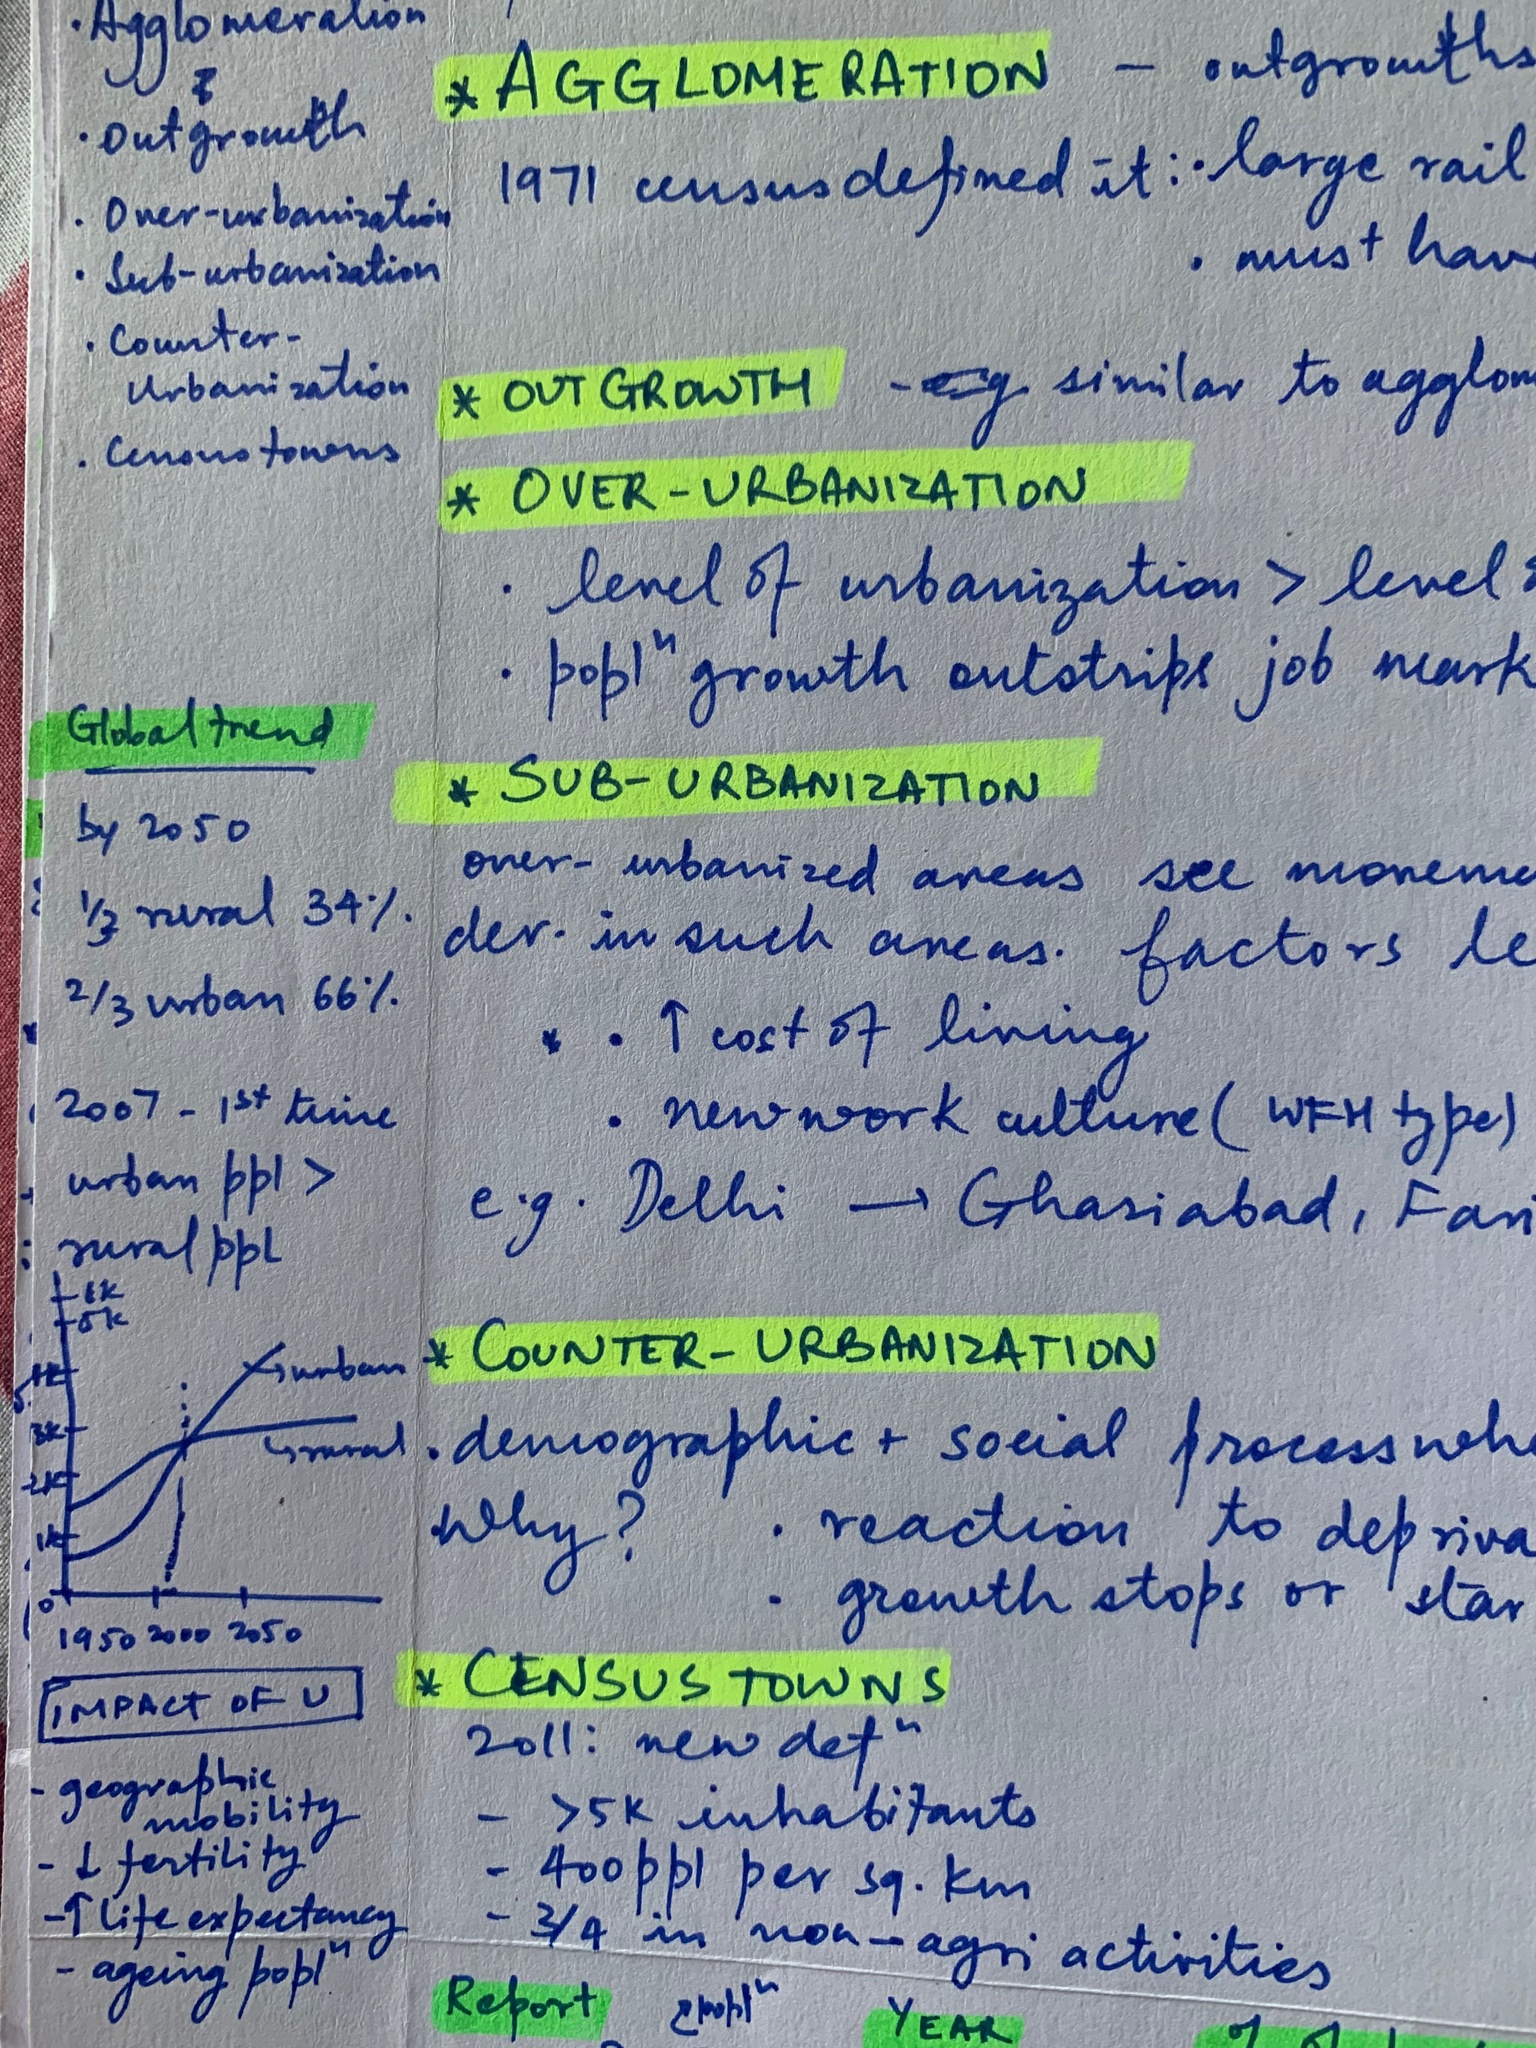 · Agglomeration
&
· Outgrowth
· Over-urbanization
· Sub-urbanization
· Counter-
Urbanization
· Census towns
Global trend
by 2050
1/3 rural 34%.
2/3 urban 66%.
2007 - 1st time
urban ppl >
rural ppl
6k
5k
4k
3k
2k
1k
0
urban
rural
1950 2000 2050
IMPACT OF U
- geographic
mobility
- ↓ fertility
- ↑ life expectancy
- ageing popl^n
* AGGLOMERATION - outgrowths
1971 census defined it: · large rail
· must have
* OUTGROWTH - similar to agglom
* OVER-URBANIZATION
· level of urbanization > level
· popl^n growth outstrips job mark
* SUB-URBANIZATION
over-urbanized areas see moveme
dev. in such areas. factors le
* · ↑ cost of living
· new work culture (WFH type)
e.g. Delhi → Ghaziabad, Fari
* COUNTER-URBANIZATION
· demographic + social process whe
Why? · reaction to depriva
· growth stops or star
* CENSUS TOWNS
2011: new def^n
- >5K inhabitants
- 400 ppl per sq. km
- 3/4 in non-agri activities
Report popl^n YEAR